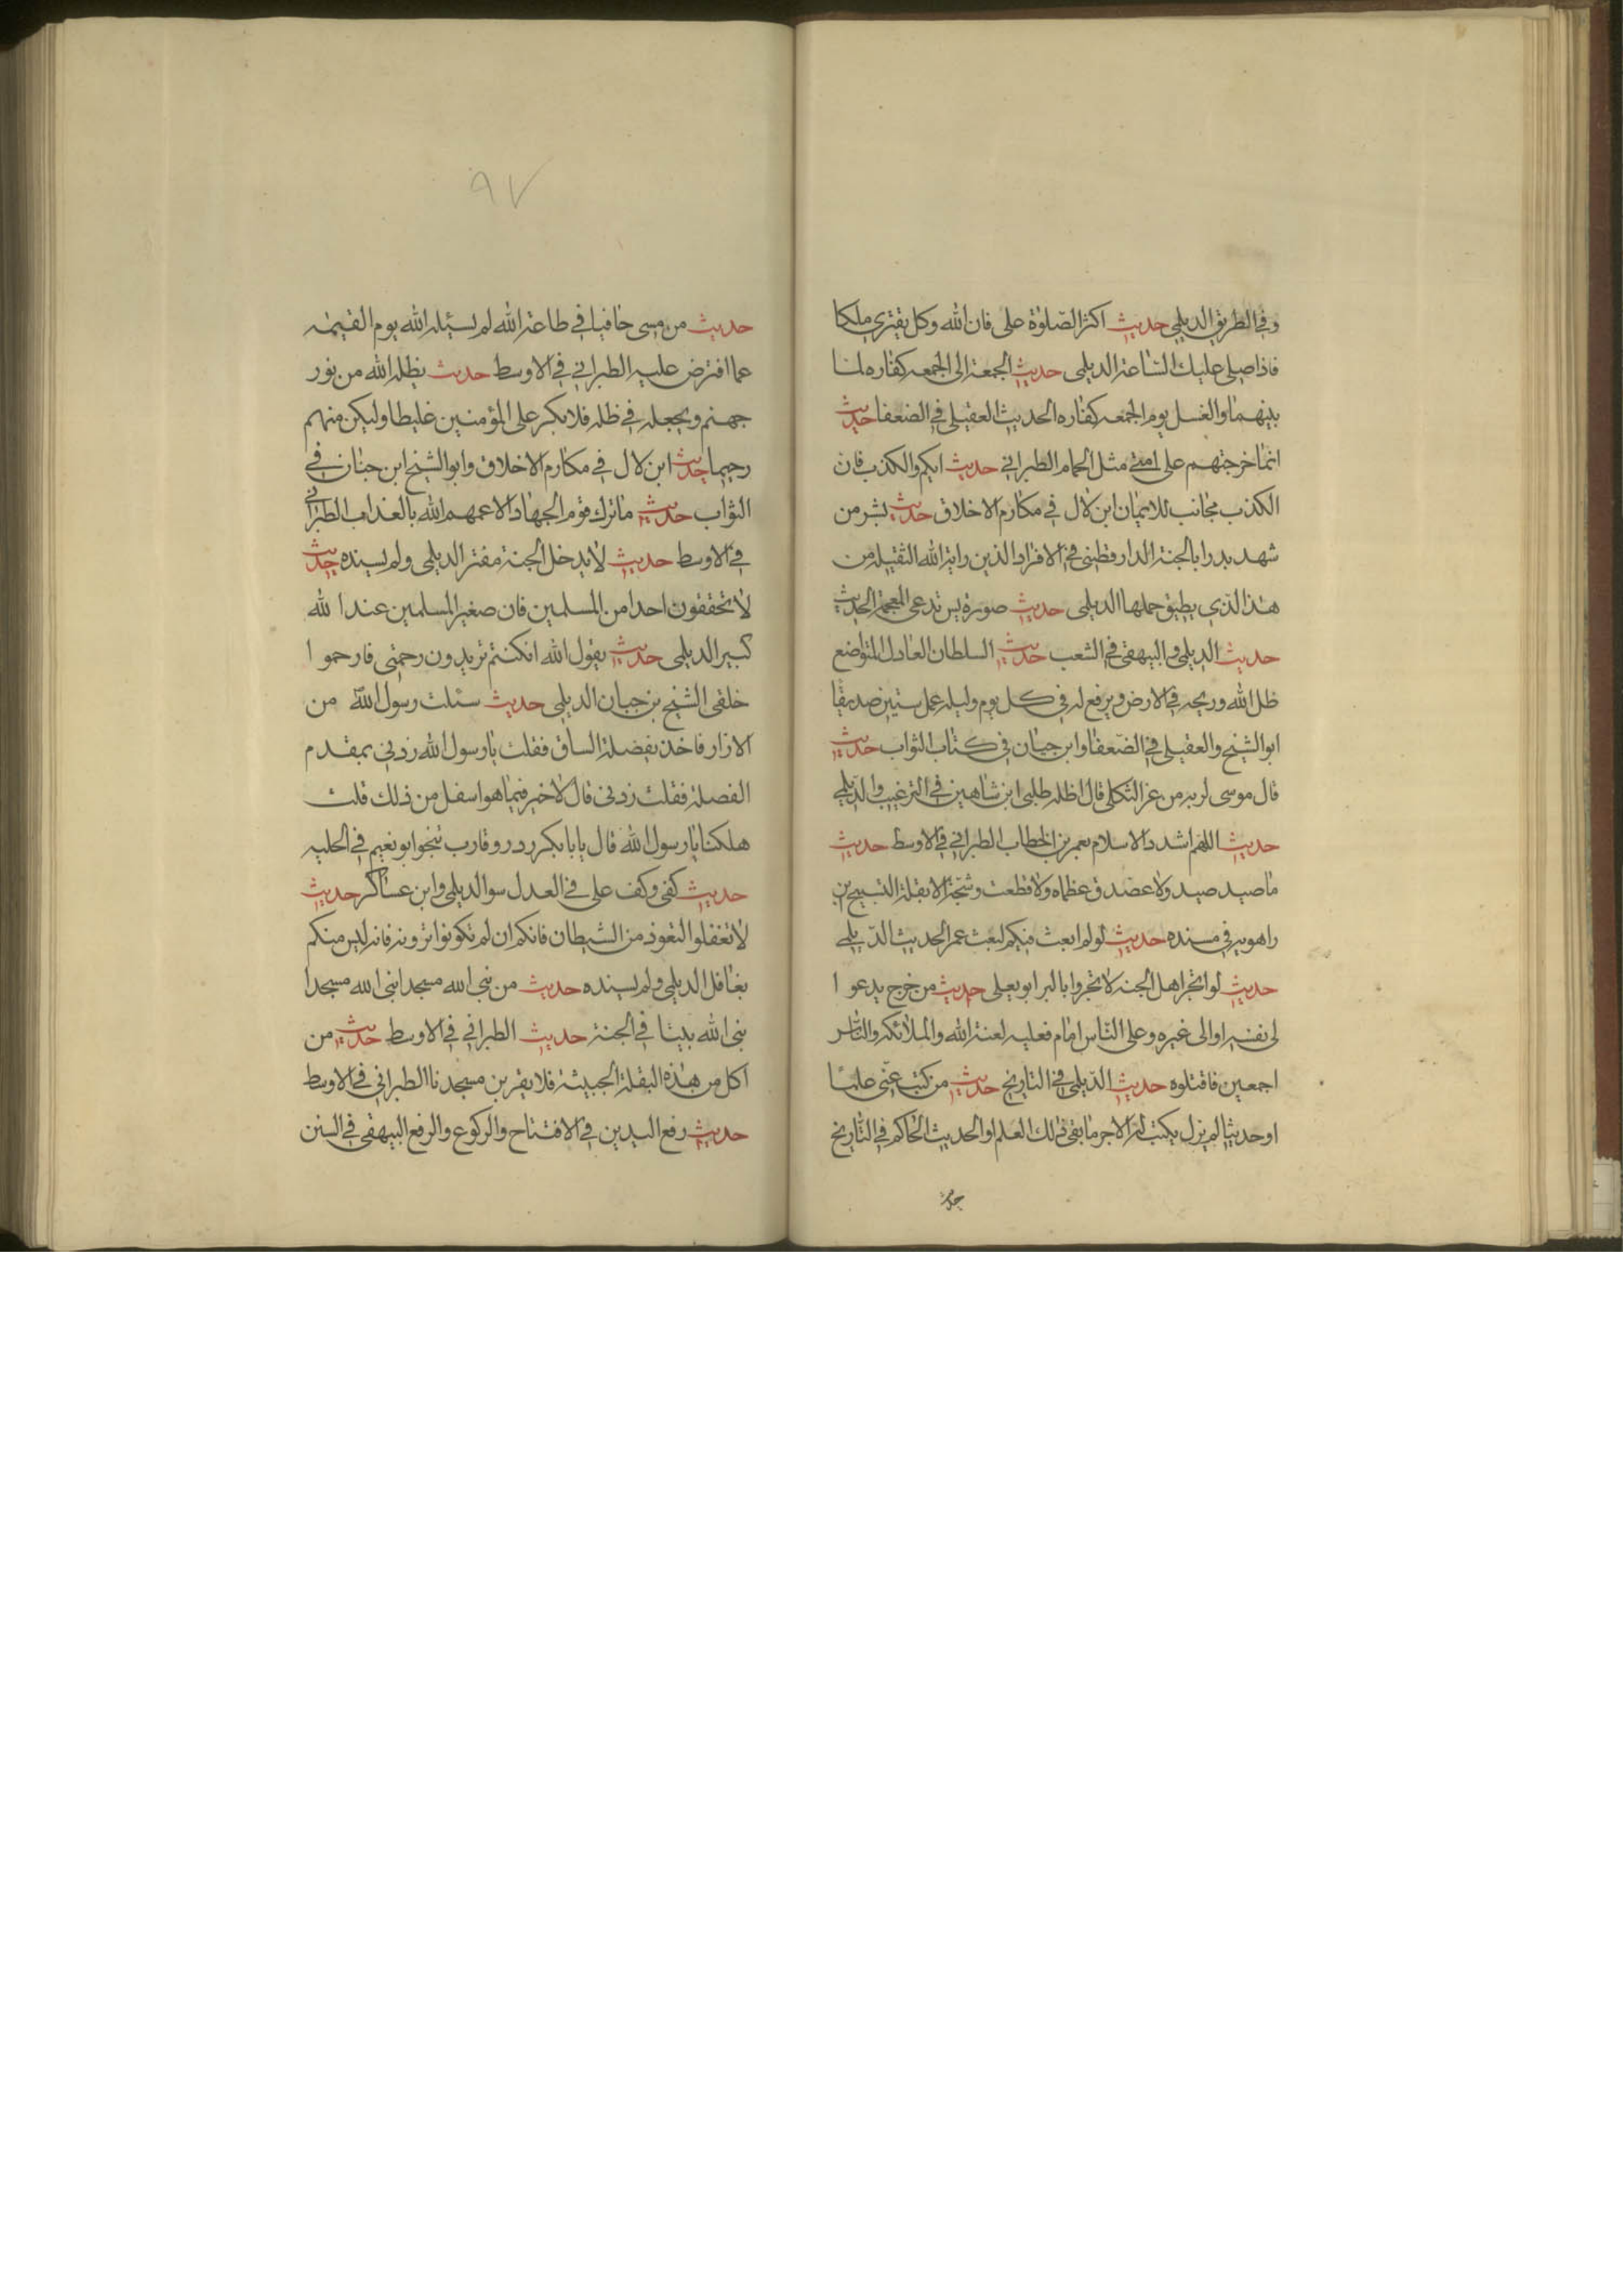 وفي الطريق الديلمي حديث اكثر الصلوة على فان الله وكل بقبري ملكا
فاذا صلى عليك الساعة الديلمى حديث الجمعة الى الجمعه كفاره لما
بينهما والغسل يوم الجمعه كفاره الحديث العقيلي في الضعفا حديث
انما خرجتهم على امتي مثل الحمام الطبراني حديث اياكم والكذب فان
الكذب مجانب للايمان ابن لال في مكارم الاخلاق حديث بشر من
شهد بدرا بالجنة الدارقطني في الافراد الذين راية الله الثقيلة من
هذا الذي يطيق حملها الديلمى حديث صورة يس تدعى المعمة الحديث
حديث الديلمي والبيهقي في الشعب حديث السلطان العادل المتواضع
ظل الله وريحه في الارض ويرفع له في كل يوم وليله عمل ستين صديقا
ابو الشيخ والعقيلي في الضعفا وابن حبان في كتاب الثواب حديث
قال موسى لربه من عز الثكلى قال اظله بظلى ابن شاهين في الترغيب والديلمي
حديث اللهم اشدد الاسلام بعمر بن الخطاب الطبراني في الاوسط حديث
ما صيد صيد ولا عضد عظاه ولا قطعت وشجة الا بقلة التسبيح بن
راهويه في مسنده حديث لو لم ابعث فيكم لبعث عمر الحديث الديلمي
حديث لو اتجر اهل الجنه لاتجروا بالبر ابو يعلى حديث من خرج يدعو ا
لى نفسه او الى غيره وعلى الناس امام فعليه لعنة الله والملائكه والناس
اجمعين فاقتلوه حديث الديلمي في التاريخ حديث من كتب عني علما
او حديثا لم يزل يكتب له الاجر ما بقى ذلك العلم او الحديث الحاكم في التاريخ
حديث
٩٧
حديث من مسى حافيا في طاعة الله لم يسئله الله يوم القيمه
عما افترض عليه الطبراني في الاوسط حديث يظله الله من نور
جهنم ويجعله في ظله فلا يكن على المؤمنين غليظا وليكن منهم
رحيما حديث ابن لال في مكارم الاخلاق وابو الشيخ ابن حبان في
الثواب حديث ما ترك قوم الجهاد الا عمهم الله بالعذاب الطبراني
في الاوسط حديث لا يدخل الجنة مفتر الديلمي ولم يسنده حديث
لا تحققون احدا من المسلمين فان صغير المسلمين عند ا لله
كبير الديلمى حديث يقول الله ان كنتم تريدون رحمتى فارحمو ا
خلقى الشيخ بن حبان الديلمي حديث سئلت رسول الله من
الازار فاخذ بفضلة الساق فقلت يا رسول الله زدني بمقدم
الفضلة فقلت زدنى قال لا خير فيما هو اسفل من ذلك قلت
هلكنا يا رسول الله قال يا با بكر ردد وقارب تنجوا ابو نعيم في الحليه
حديث كفى وكف على في العدل سوا الديلمي وابن عساكر حديث
لا تغفلوا التعوذ من الشيطان فانكم ان لم تكونوا ترونه فانه ليس منكم
بغافل الديلمي ولم يسنده حديث من بنى الله مسجدا بنى الله مسجدا
بنى الله بيتا في الجنة حديث الطبراني في الاوسط حديث من
اكل من هذه البقلة الخبيثة فلا يقربن مسجدنا الطبراني في الاوسط
حديث رفع اليدين في الافتتاح والركوع والرفع البيهقي في السنن